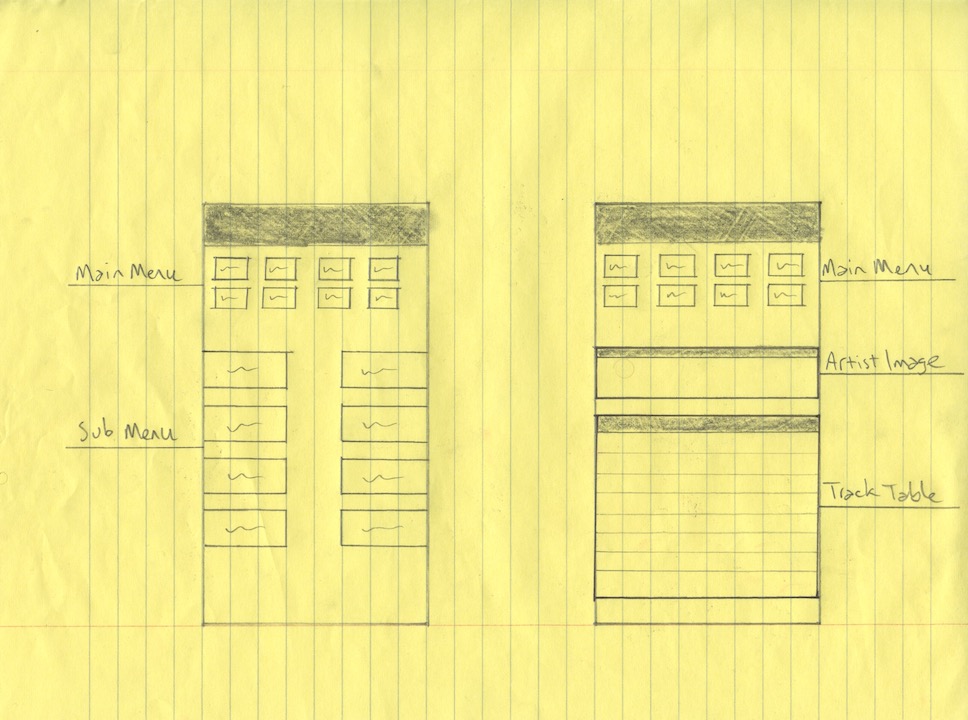 Main Menu
Sub Menu
Main Menu
Artist Image
Track Table